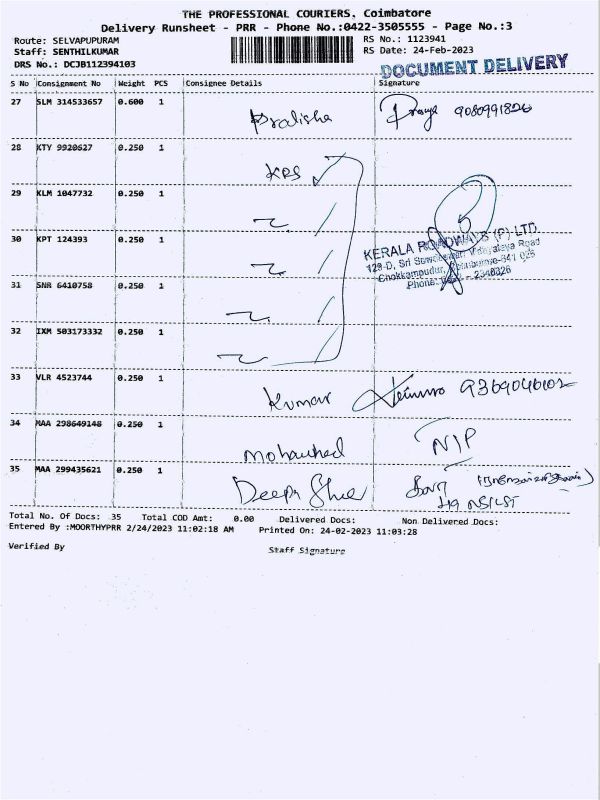 THE PROFESSIONAL COURIERS, Coimbatore
Delivery Runsheet - PRR - Phone No.:0422-3505555 - Page No.:3
Route: SELVAPUPURAM
RS No.: 1123941
Staff: SENTHILKUMAR
RS Date: 24-Feb-2023
DRS No.: DCJB112394103
DOCUMENT DELIVERY
S No Consignment No Weight PCS Consignee Details Signature
27 SLM 314533657 0.600 1 Pradisha 9080991826
28 KTY 9920627 0.250 1 KRS
29 KLM 1047732 0.250 1
30 KPT 124393 0.250 1
KERALA ROADWAYS (P) LTD
129-D, Sri Road
31 SNR 6410758 0.250 1
32 IXM 503173332 0.250 1
33 VLR 4523744 0.250 1 Kumar 9369046102
34 MAA 298649148 0.250 1 Mohamed NIP
35 MAA 299435621 0.250 1 Deepa
Total No. Of Docs: 35 Total COD Amt: 0.00 Delivered Docs: Non Delivered Docs:
Entered By :MOORTHYPRR 2/24/2023 11:02:18 AM Printed On: 24-02-2023 11:03:28
Verified By Staff Signature